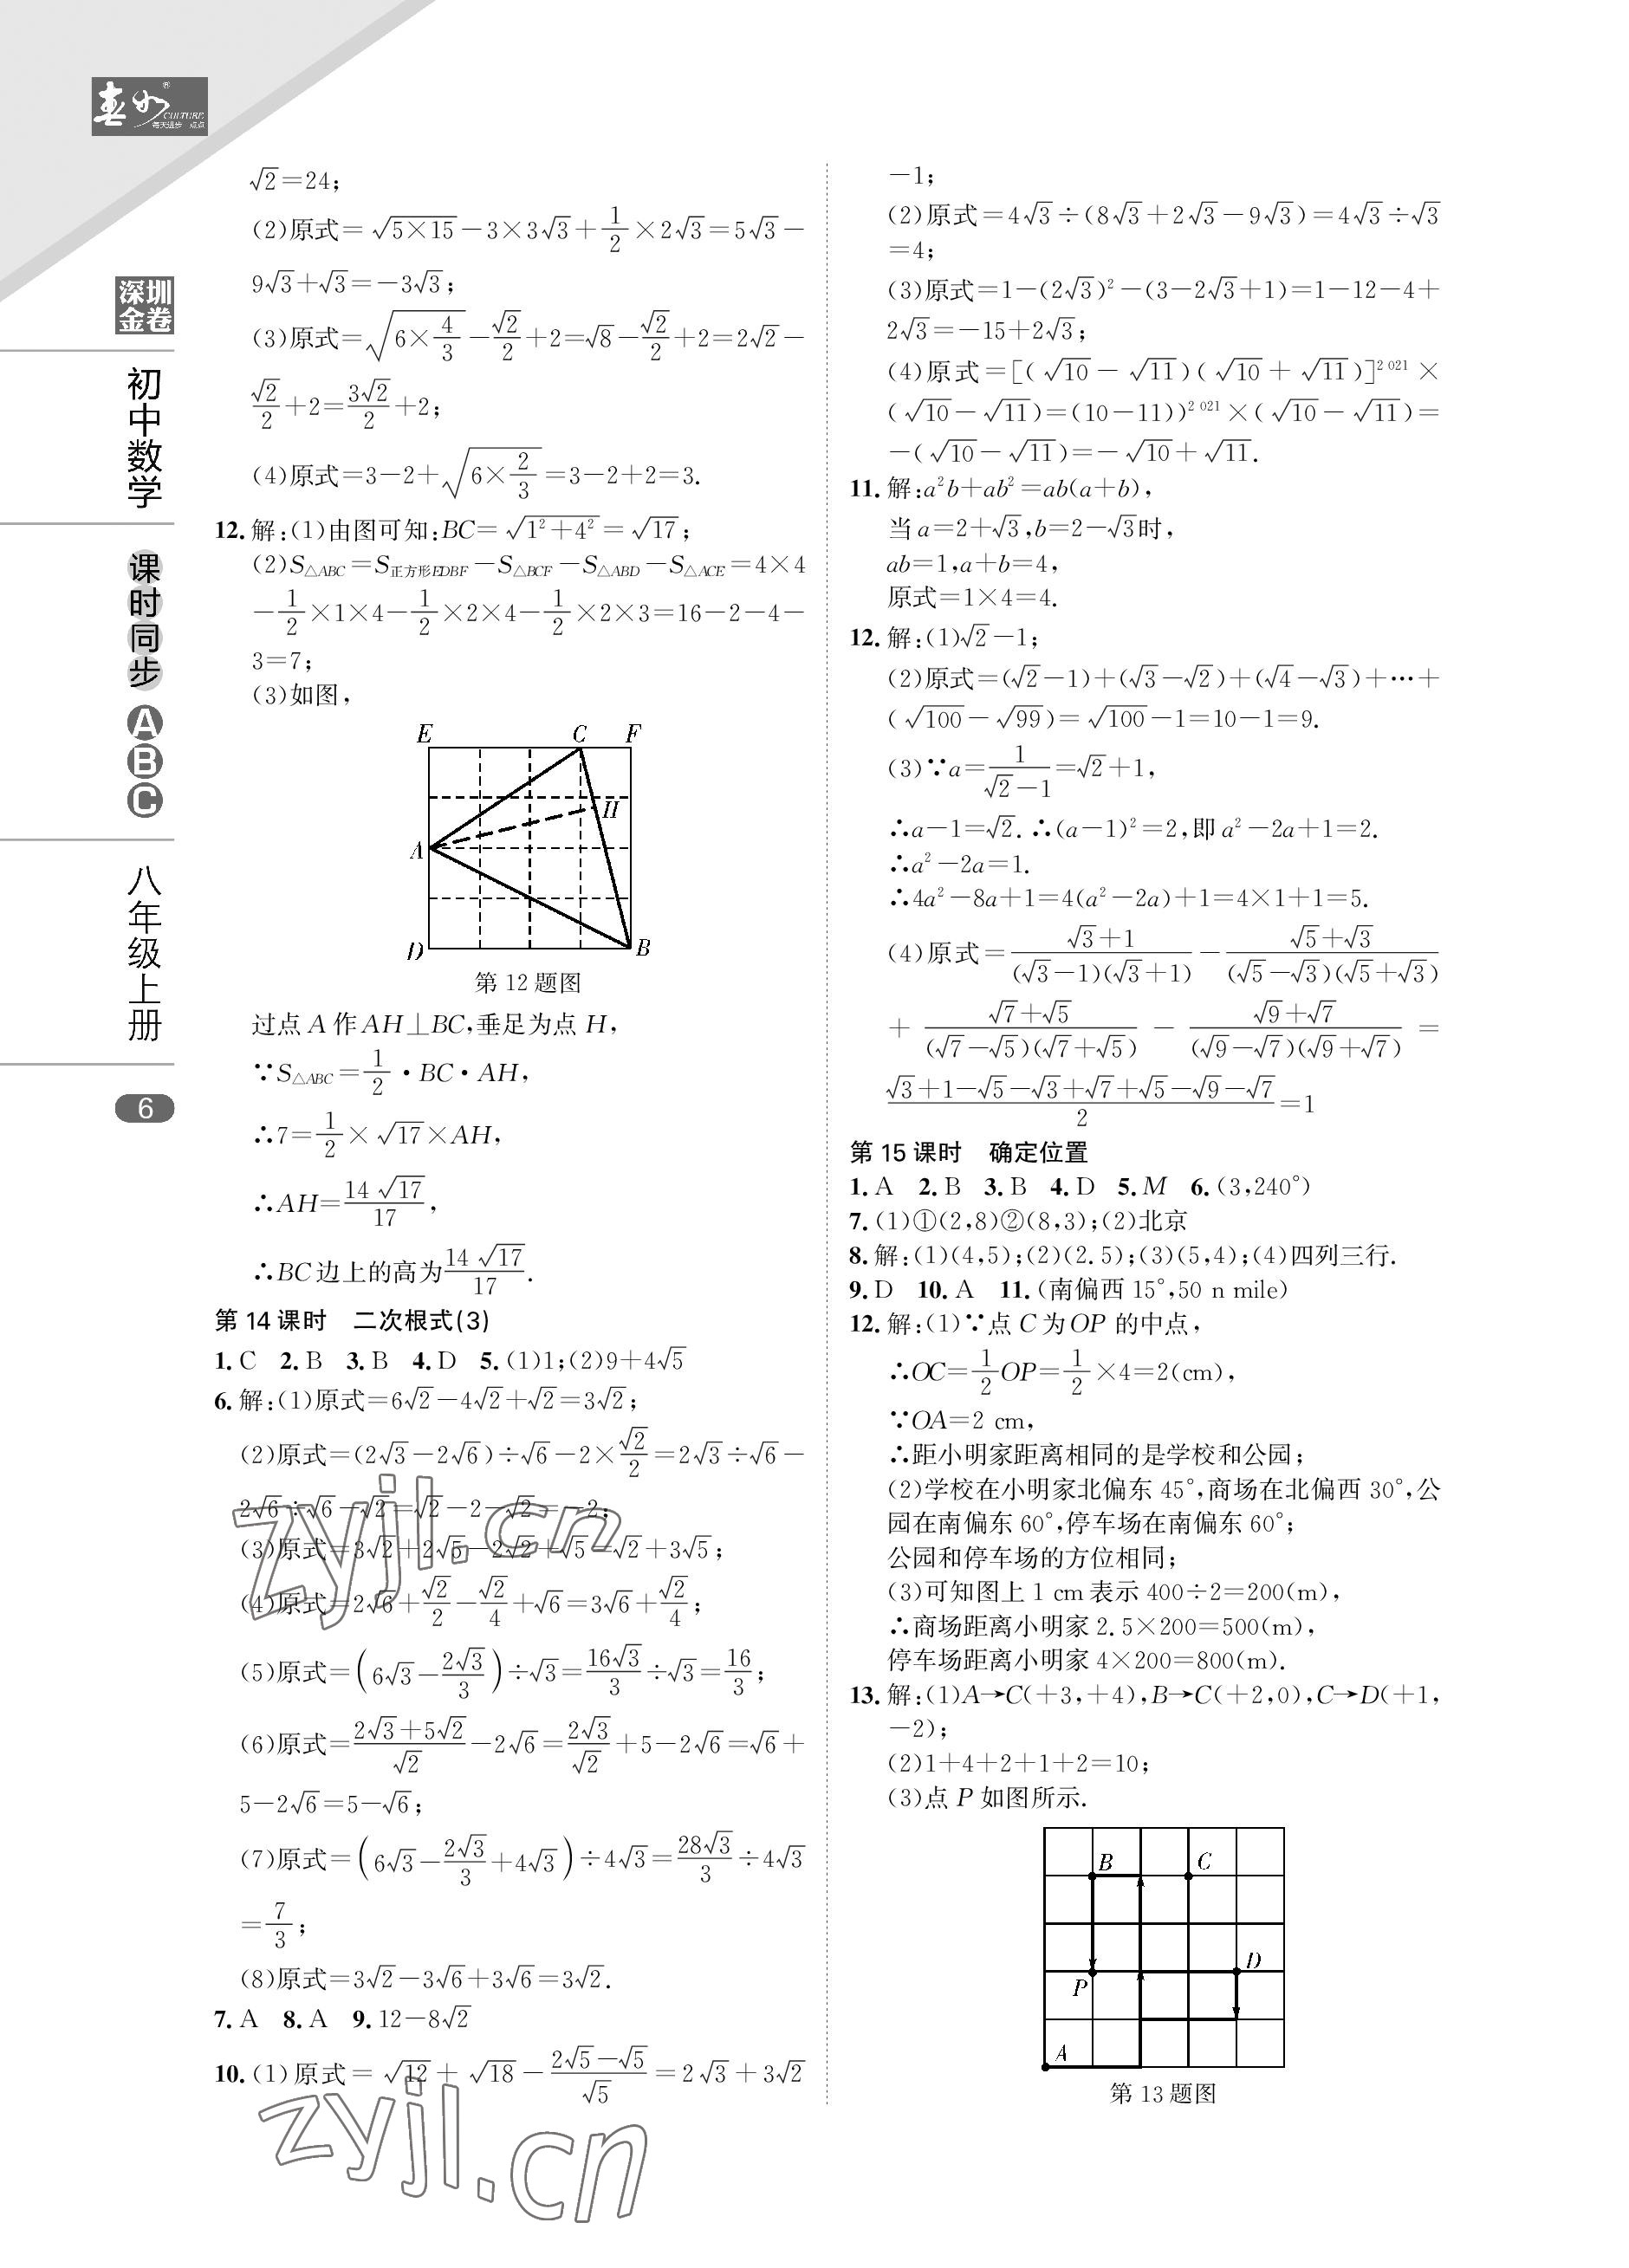 春如®
CULTURE
每天进步一点点
深圳
金卷
初中数学
课时同步
A
B
C
八年级上册
6
√2=24;
(2)原式=√(5×15)-3×3√3+1/2×2√3=5√3-
9√3+√3=-3√3;
(3)原式=√(6×4/3)-√2/2+2=√8-√2/2+2=2√2-
√2/2+2=3√2/2+2;
(4)原式=3-2+√(6×2/3)=3-2+2=3.
12.解:(1)由图可知:BC=√(1²+4²)=√17;
(2)S△ABC=S正方形EDBF-S△BCF-S△ABD-S△ACE=4×4
-1/2×1×4-1/2×2×4-1/2×2×3=16-2-4-
3=7;
(3)如图,
E C F
H
A
D B
第12题图
过点A作AH⊥BC,垂足为点H,
∵S△ABC=1/2·BC·AH,
∴7=1/2×√17×AH,
∴AH=14√17/17,
∴BC边上的高为14√17/17.
第14课时 二次根式(3)
1.C 2.B 3.B 4.D 5.(1)1;(2)9+4√5
6.解:(1)原式=6√2-4√2+√2=3√2;
(2)原式=(2√3-2√6)÷√6-2×√2/2=2√3÷√6-
2√6÷√6-√2=√2-2-√2=-2;
(3)原式=3√2+2√5-2√2+√5=√2+3√5;
(4)原式=2√6+√2/2-√2/4+√6=3√6+√2/4;
(5)原式=(6√3-2√3/3)÷√3=16√3/3÷√3=16/3;
(6)原式=(2√3+5√2)/√2-2√6=2√3/√2+5-2√6=√6+
5-2√6=5-√6;
(7)原式=(6√3-2√3/3+4√3)÷4√3=28√3/3÷4√3
=7/3;
(8)原式=3√2-3√6+3√6=3√2.
7.A 8.A 9.12-8√2
10.(1)原式=√12+√18-(2√5-√5)/√5=2√3+3√2
-1;
(2)原式=4√3÷(8√3+2√3-9√3)=4√3÷√3
=4;
(3)原式=1-(2√3)²-(3-2√3+1)=1-12-4+
2√3=-15+2√3;
(4)原式=[(√10-√11)(√10+√11)]²⁰²¹×
(√10-√11)=(10-11))²⁰²¹×(√10-√11)=
-(√10-√11)=-√10+√11.
11.解:a²b+ab²=ab(a+b),
当a=2+√3,b=2-√3时,
ab=1,a+b=4,
原式=1×4=4.
12.解:(1)√2-1;
(2)原式=(√2-1)+(√3-√2)+(√4-√3)+…+
(√100-√99)=√100-1=10-1=9.
(3)∵a=1/(√2-1)=√2+1,
∴a-1=√2.∴(a-1)²=2,即a²-2a+1=2.
∴a²-2a=1.
∴4a²-8a+1=4(a²-2a)+1=4×1+1=5.
(4)原式=(√3+1)/((√3-1)(√3+1))-(√5+√3)/((√5-√3)(√5+√3))
+(√7+√5)/((√7-√5)(√7+√5))-(√9+√7)/((√9-√7)(√9+√7))=
(√3+1-√5-√3+√7+√5-√9-√7)/2=1
第15课时 确定位置
1.A 2.B 3.B 4.D 5.M 6.(3,240°)
7.(1)①(2,8)②(8,3);(2)北京
8.解:(1)(4,5);(2)(2.5);(3)(5,4);(4)四列三行.
9.D 10.A 11.(南偏西15°,50 n mile)
12.解:(1)∵点C为OP的中点,
∴OC=1/2OP=1/2×4=2(cm),
∵OA=2 cm,
∴距小明家距离相同的是学校和公园;
(2)学校在小明家北偏东45°,商场在北偏西30°,公
园在南偏东60°,停车场在南偏东60°;
公园和停车场的方位相同;
(3)可知图上1 cm表示400÷2=200(m),
∴商场距离小明家2.5×200=500(m),
停车场距离小明家4×200=800(m).
13.解:(1)A→C(+3,+4),B→C(+2,0),C→D(+1,
-2);
(2)1+4+2+1+2=10;
(3)点P如图所示.
B C
D
P
A
第13题图
zyjl.cn
zyjl.cn